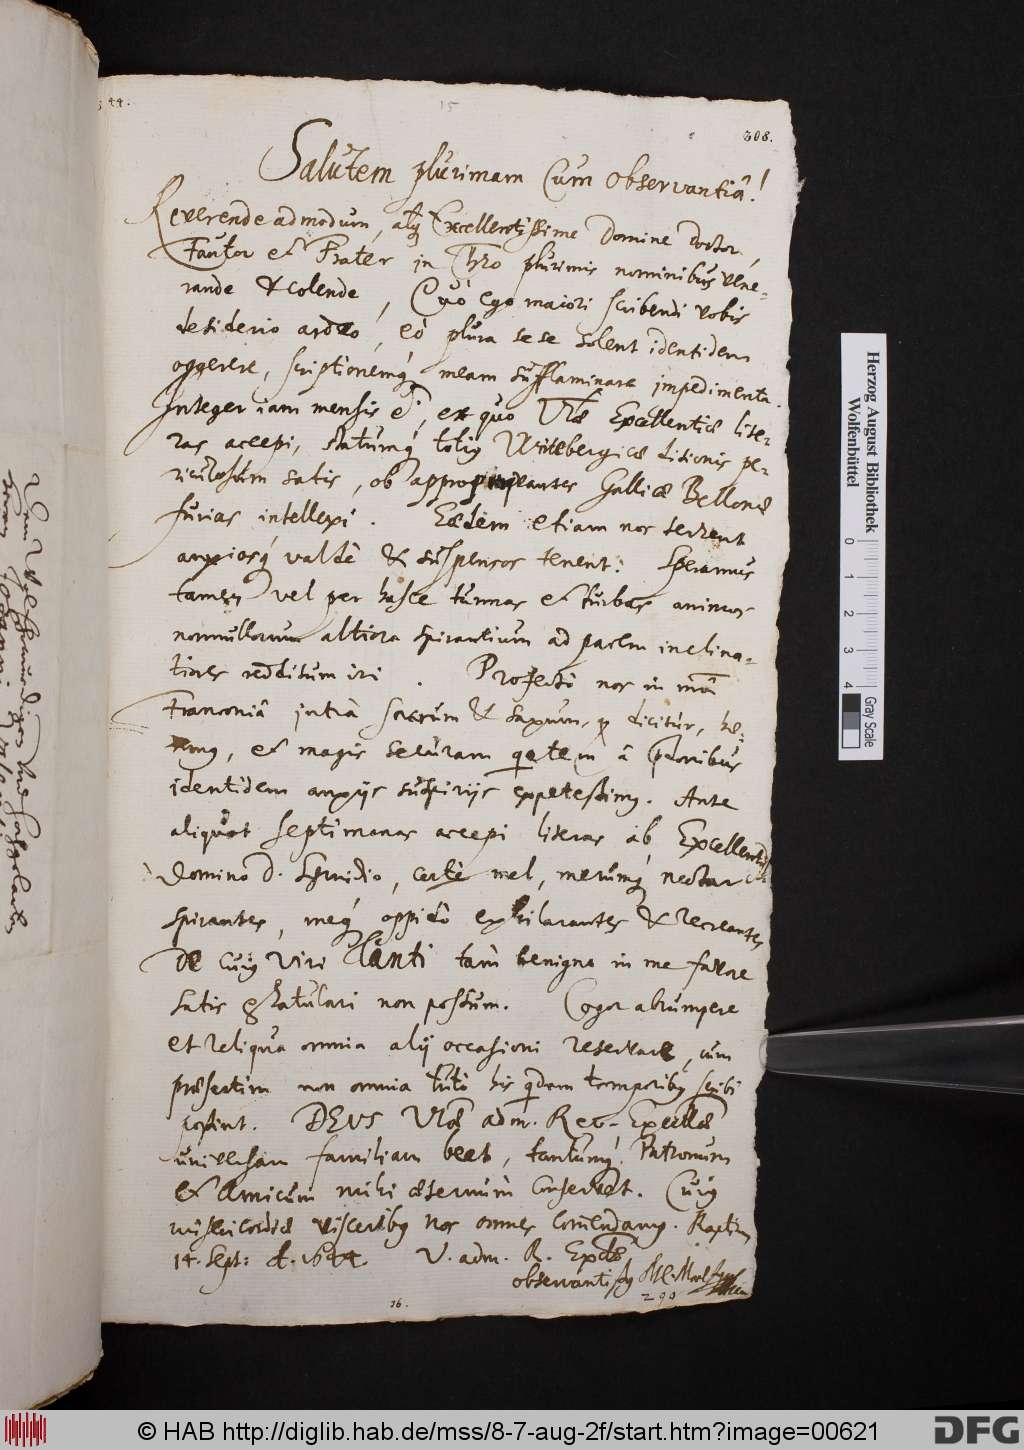 44.
15
308.
Salutem plurimam cum observantiâ!
Reverende admodum, atq; Excellentissime Domine Doctor,
Fautor et Frater in Chro plurimis nominibus vene-
rande & colende, Quò ego maiori scribendi vobis
desiderio ardeo, eò plura sese solent identidem
oggerere, scriptionemq; meam sufflaminare impedimenta.
Integer iam mensis e, ex quo Vræ Excellentiæ lite-
ras accepi, statumq; totiq Witebergicæ ditionis pe-
riculosum satis, ob appropinquantes Gallicæ Bellonæ
furias intellexi. Eædem etiam nos terrent
anxiosq; valdè & suspensos tenent: Speramus
tamen vel per hasce turmas et turbas animos
nonnullorum altiora spirantium ad pacem inclina-
tiores redditum iri. Profectò nos in
Franconiâ intra sacrum & saxum, dicitur, hæ-
, et magis securam qetem â pdonibus
identidem anxijs suspirijs expetessimq. Ante
aliquot septimanas accepi literas ab Excellentiss
Domino D. Schmidio, certè mel, merumq; nectar
spirantes, meq; oppidò exhilarantes & recreantes,
De cuiq Viri Tanti tàm benigno in me favore
satis gratulari non possum. Cogor abrumpere
et reliqua omnia alij occasioni reservare, cùm
præsertim non omnia tutò his qdem temporibq scribi
possint. DEUS Vræ adm. Rev. Excellæ
universam familiam beet, tantumq; Patronum
et Amicum mihi æternùm conservet. Cuiq
misericordiæ visceribq nos omnes comendamq. Raptim
14. Sept: A. 1644. V. adm. R. Excell
observantissq
290
16.
Herzog August Bibliothek
Wolfenbüttel
0 1 2 3 4
Gray Scale
© HAB http://diglib.hab.de/mss/8-7-aug-2f/start.htm?image=00621
DFG